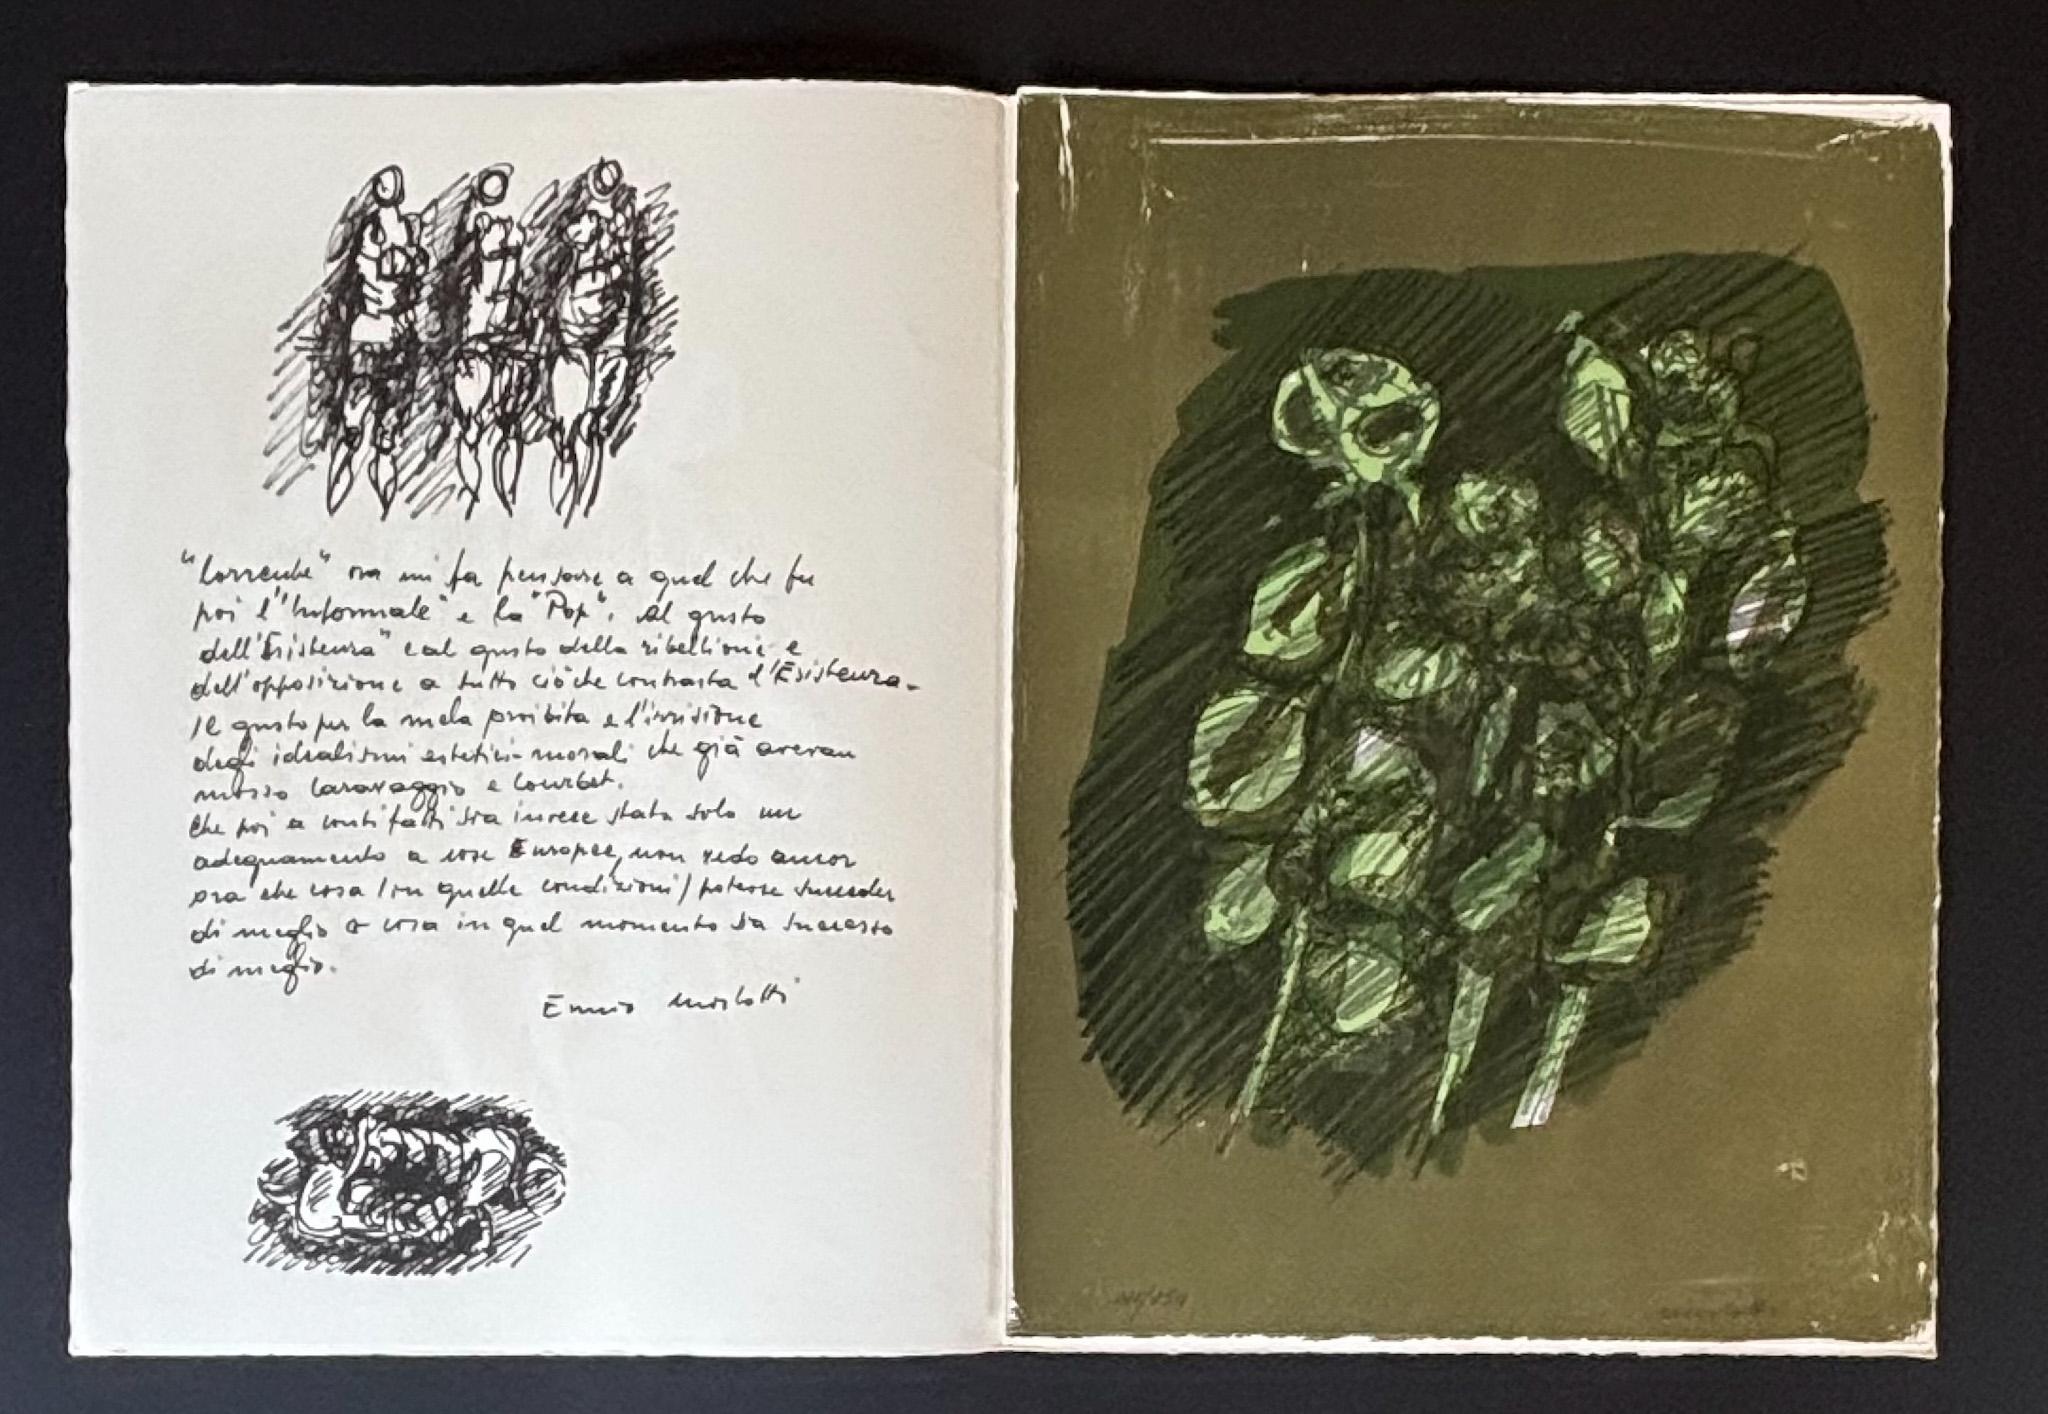 "Corrente" ora mi fa pensare a quel che fu
poi l'"Informale" e la "Pop". Al gusto
dell'Esistenza" e al gusto della ribellione e
dell'opposizione a tutto ciò che contrasta l'Esistenza.
Il gusto per la mela proibita e l'irrisione
degli idealismi estetici-morali che già avevan
mosso Caravaggio e Courbet.
Che poi a conti fatti sia invece stato solo un
adeguamento a cose Europee, non vedo ancor
ora che cosa (in quelle condizioni) potesse succeder
di meglio o cosa in quel momento sia successo
di meglio.
Ennio Morlotti